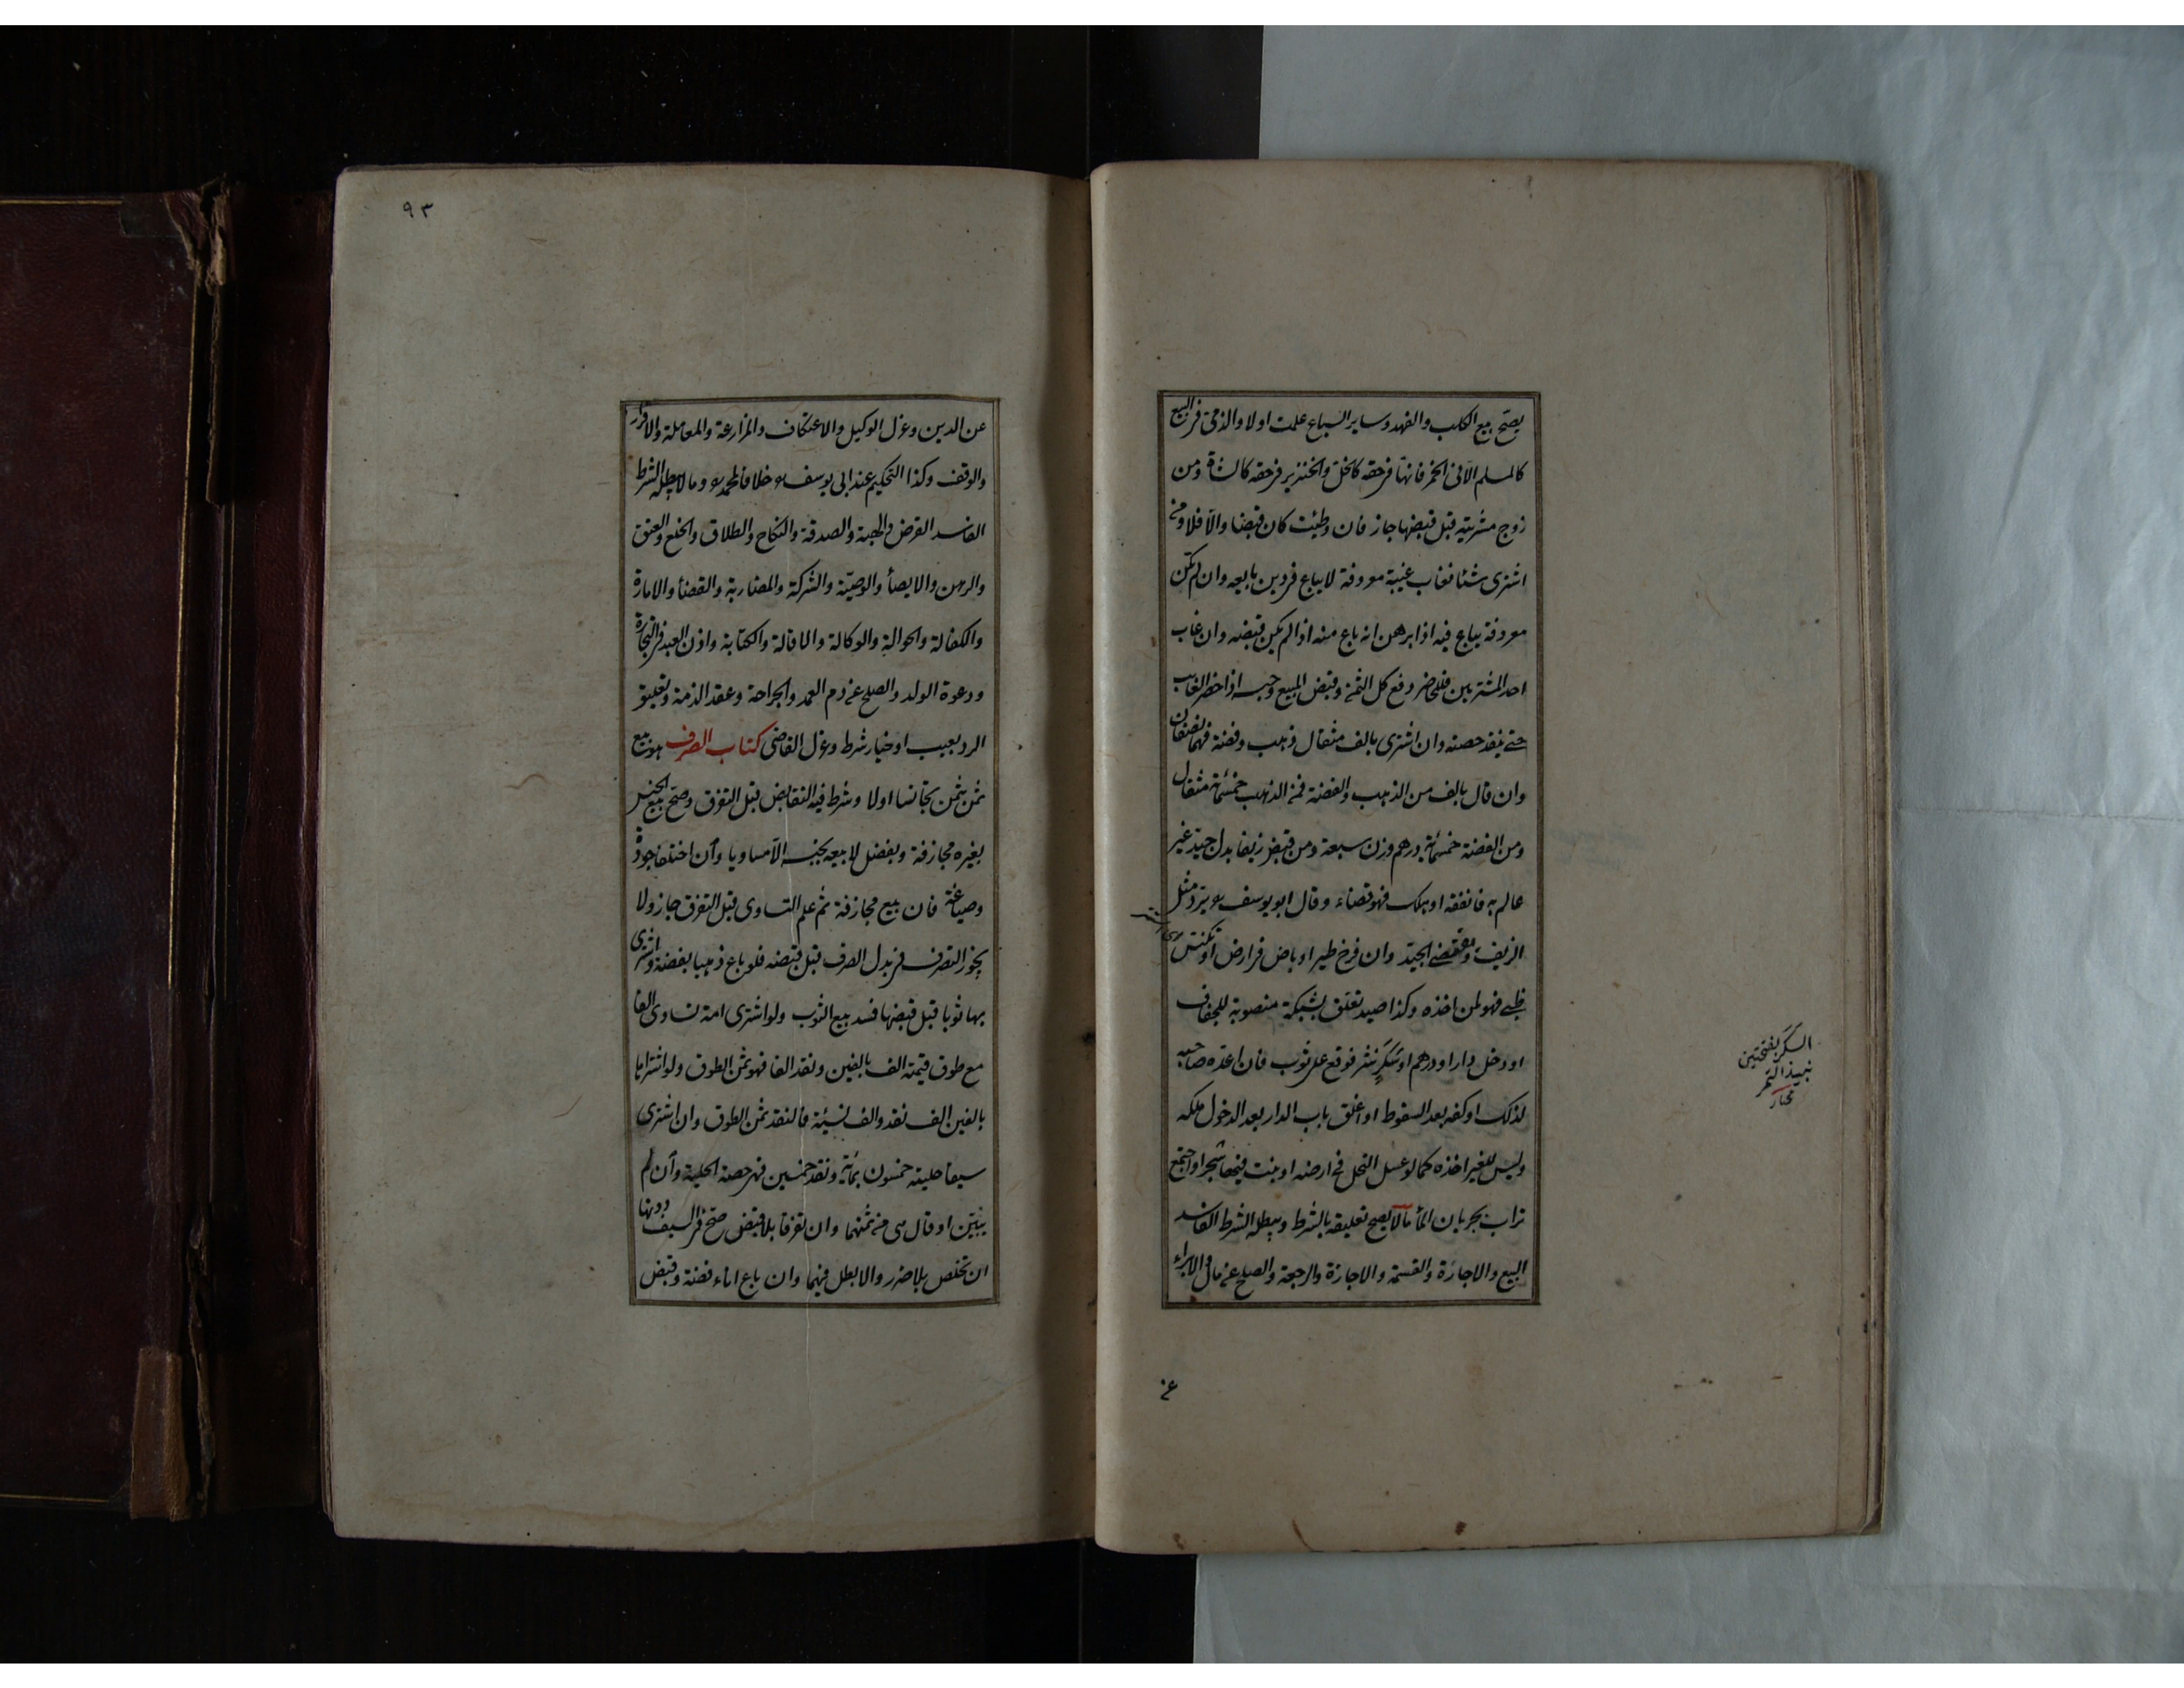 يصح بيع الكلب والفهد وساير السباع علمت اولا والذمى فى البيع
كالمسلم الا فى الخمر فانها فى حقه كالخل والخنزير فى حقه كالشاة ومن
زوج مشريته قبل قبضها جاز فان وطئت كان قبضا والا فلا ومن
اشترى شئا فغاب غيبة معروفة لا يباع فى دين بايعه وان لم تكن
معروفة يباع فيه اذا برهن انه باع منه اذا لم يكن قبضه وان غاب
احد المشتريين فللحاضر دفع كل الثمن وقبض المبيع وحبسه اذا حضر الغائب
حتى ينقد حصته وان اشترى بالف مثقال ذهب وفضة فهما نصفان
وان قال بالف من الذهب والفضة فمن الذهب خمسمائة مثقال
ومن الفضة خمسمائة درهم وزن سبعة ومن قبض زيفا بدل جيد غير
عالم به فانفقه او هلك فهو قضاء وقال ابو يوسف يرد مثل
الزيف ويقتضى الجيد وان فرخ طير او باض فى ارض او تكنس
ظبى فهو لمن اخذه وكذا صيد تعلق بشبكة منصوبة للجفاف
او دخل دارا او درهم او سَكَرٍ نثر فوقع على ثوب فان اعده صاحبه
لذلك او كفه بعد السقوط او اغلق باب الدار بعد الدخول ملكه
وليس للغير اخذه كما لو عسل النحل فى ارضه او نبت فيها شجر او اجتمع
تراب بجريان المأ ما لا يصح تعليقه بالشرط ويبطله الشرط الفاسد
البيع والاجارة والقسمة والاجازة والرجعة والصلح عن مال والابراء
السكر بفتحتين
نبيذ التمر
مختار
عن
٩٣
عن الدين وعزل الوكيل والاعتكاف والمزارعة والمعاملة والاقرار
والوقف وكذا التحكيم عند ابى يوسف خلافا لمحمد وما لا يبطله الشرط
الفاسد القرض والهبة والصدقة والنكاح والطلاق والخلع والعتق
والرهن والايصأ والوصيّة والشركة والمضاربة والقضأ والامارة
والكفالة والحوالة والوكالة والاقالة والكتابة واذن العبد فى التجارة
ودعوة الولد والصلح عن دم العمد والجراحة وعقد الذمة وتعليق
الرد بعيب او خيار شرط وعزل القاضى كتاب الصرف هو بيع
ثمن بثمن تجانسا اولا وشرط فيه التقابض قبل التفرق وصح بيع الجنس
بغيره مجازفة وبفضل لا بيعه بجنسه الا مساويا وان اختلفا جودة
وصياغة فان بيع مجازفة ثم علم التساوى قبل التفرق جاز ولا
يجوز التصرف فى بدل الصرف قبل قبضه فلو باع ذهبا بفضة واشترى
بها ثوبا قبل قبضها فسد بيع الثوب ولو اشترى امة تساوى الفا
مع طوق قيمته الف بالفين ونقد الفا فهو ثمن الطوق ولو اشتراها
بالفين الف نقد والف نسيئة فالنقد ثمن الطوق وان اشترى
سيفا حليته خمسون بمائة ونقد خمسين فهى حصة الحلية وان لم
يبيّن او قال هى من ثمنهما وان تفرقا بلا قبض صح فى السيف دونها
ان تخلص بلا ضرر والا بطل فيهما وان باع اناء فضة وقبض